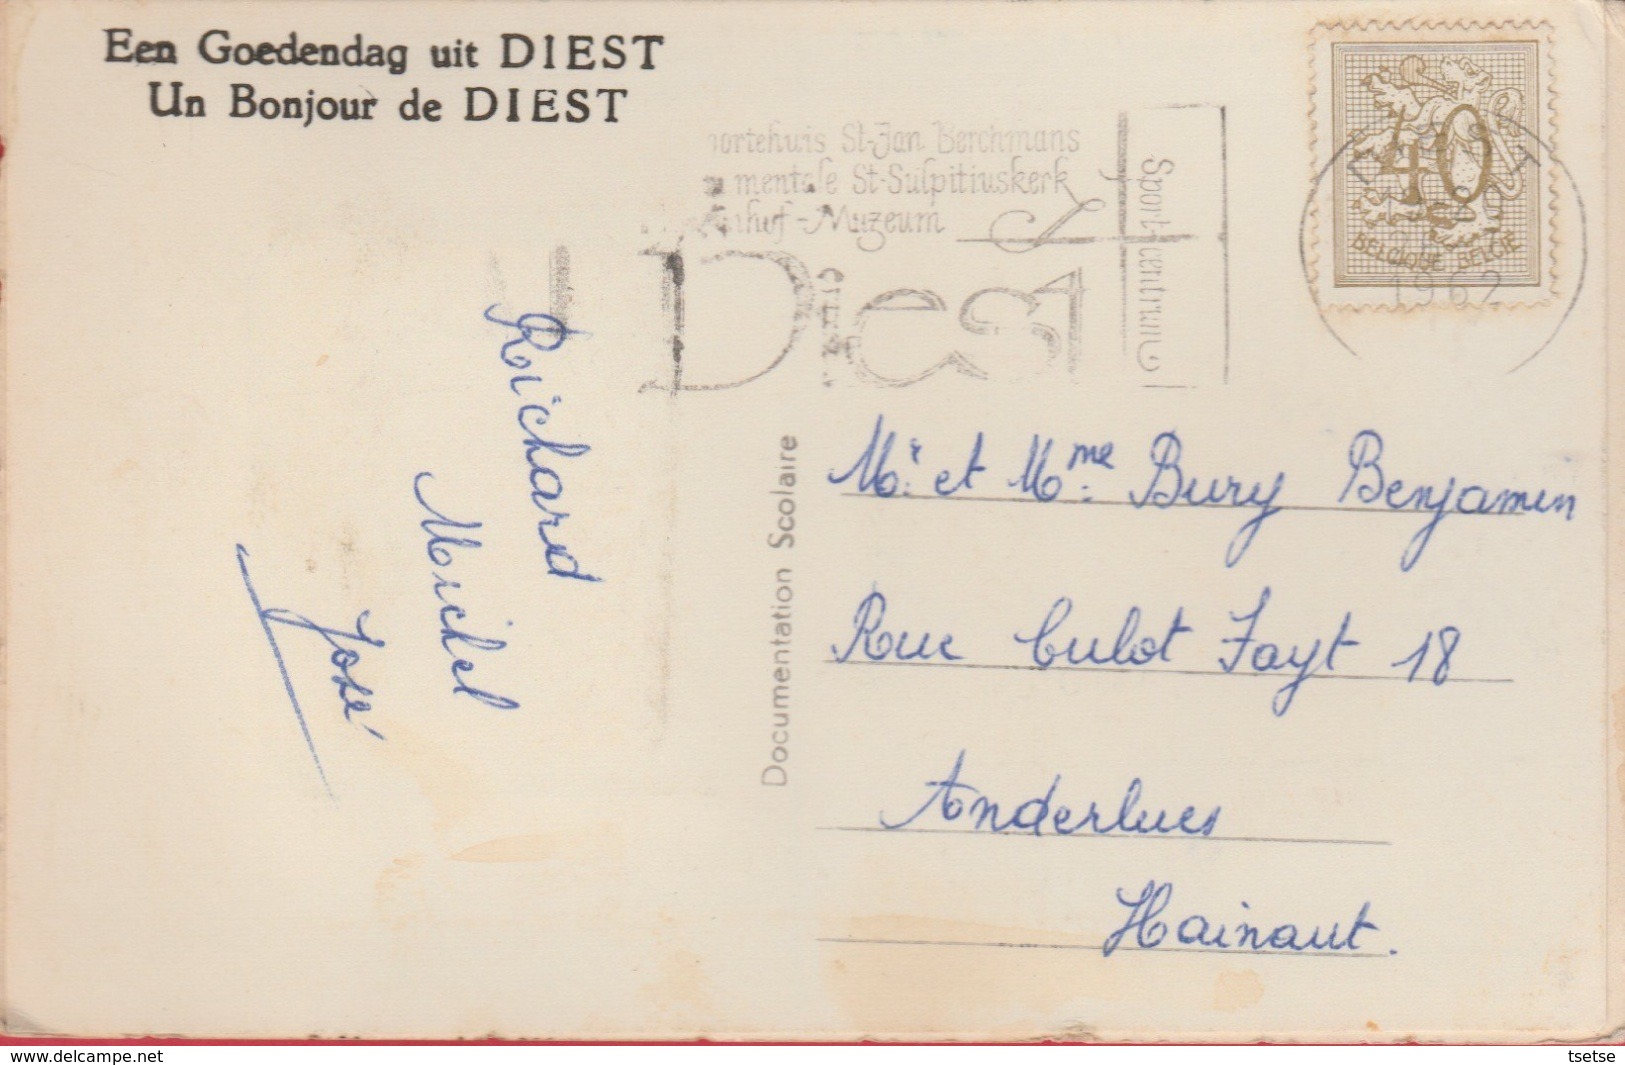 Een Goedendag uit DIEST
Un Bonjour de DIEST
St-Jan Berchmans
St-Sulpitiuskerk
Muzeum
Diest
Sportcentrum
40
BELGIQUE BELGIË
1962
Richard
Michel
José
Documentation Scolaire
Mr. et Mme. Bury Benjamin
Rue Culot Fayt 18
Anderlues
Hainaut.
www.delcampe.net
tsetse